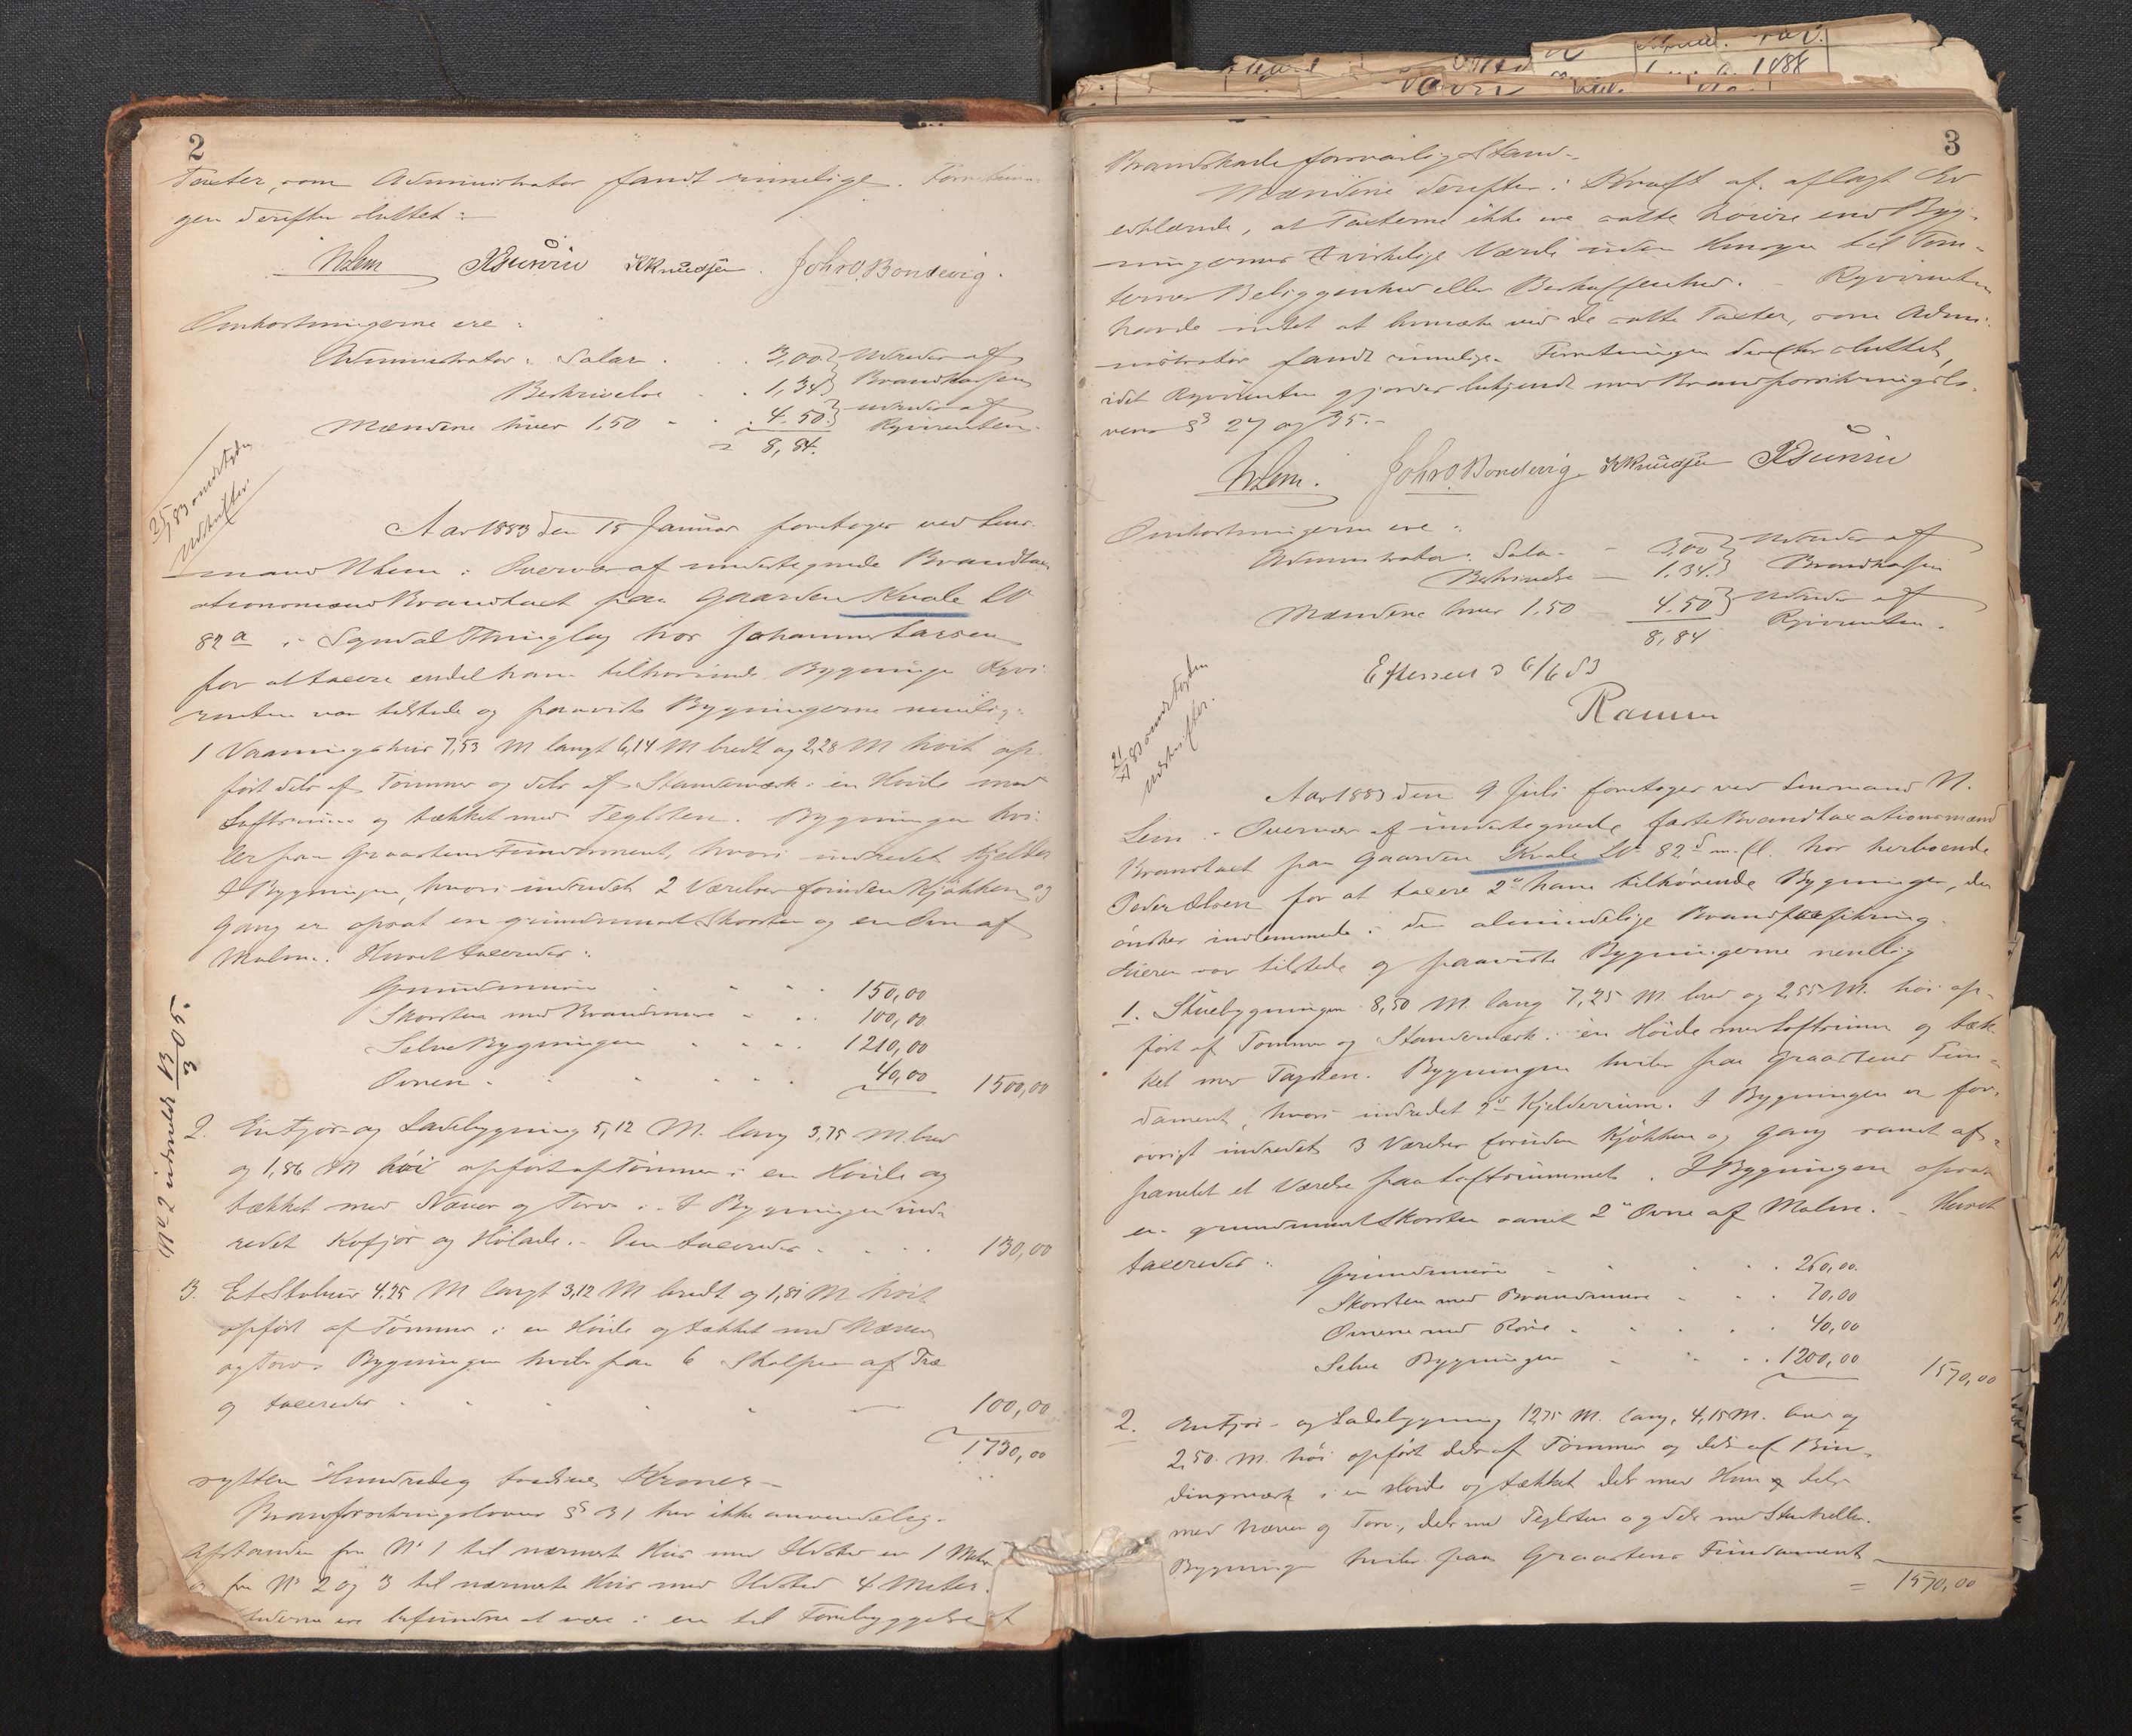 2
Taxter, som Administrator fandt rimelige. Forretnin-
gen derefter sluttet:
NLem KKnudsen. Joh. O. Bondevig.
Omkostningerne ere:
Administrator: Salær . . 3,00 } Udredes af
Beskrivelse . . 1,34 } Brandkassen
Mændene hver 1.50 - . 4.50 } udredes af Rqvirenten.
= 8,84.
omvdstyden
Udskrifter
Aar 1883 den 15 Januar foretoges ved Lens-
mand NLem i Overvær af undertegnede Brandtax-
ationsmænd Brandtaxt paa Gaarden Kvale LN
82a i Sogndal Thinglag hos Johannes Larsen
for at taxere endel ham tilhørende Bygninger. Rqvi-
renten var tilstede og paaviste Bygningerne nemlig:
1 Vaaningshus 7,53 M langt 6,14 M bredt og 2,28 M høit op-
ført dels af Tømmer og dels af Standerværk i en Høide med
Loftsrum og tækket med Teglsten. Bygningen hvi-
ler paa Graastens Fundament, hvori indredet Kjelder
I Bygningen, hvori indredet 2 Værelser foruden Kjøkken og
Gang er opsat en grundmuret Skorsten og en Ovn af
Malm. Huset taxeredes:
Grundmuren . - . . 150,00
Skorsten med Brandmure - . . 100,00
Selve Bygningen . . . . 1210,00
Ovnen . . . . . 40,00 1500,00
No 2 udmeldt 13/3 05.
2. En Fjøs- og Ladebygning 5,12 M. lang 3,75 M. bred
og 1,86 M høi opført af Tømmer i en Høide og
tækket med Næver og Torv. I Bygningen ind-
redet Kofjøs og Hølade. Den taxeredes . . . . 130,00
3. Et Stabur 4,25 M langt 3,12 M bredt og 1,81 M høit
opført af Tømmer i en Høide og tækket med Næver
og Torv. Bygningen hviler paa 6 Stolper af Træ
og taxeredes . . . . . . 100,00
1730,00
sytten Hundrede og tredive Kroner -
Brandforsikringslovens §§ 31 har ikke anvendelse.
Afstanden fra No 1 til nærmeste Hus med Ildsted er 1 Meter
fra No 2 og 3 til nærmeste Hus med Ildsted 4 Meter.
ere befundne at være i en til Forebyggelse af
3
Brandskade forsvarlig Stand-
Mændene derefter i Kraft af aflagt Ed
erklærede, at Taxterne ikke ere satte høiere end Byg-
ningernes virkelige Værdi uden Hensyn til Tom-
ternes Beliggenhed eller Beskaffenhed. - Rqvirenten
havde intet at bemærke ved de satte Taxter, som Admi-
nistrator fandt rimelige. Forretningen derefter sluttet,
idet Rqvirenten gjordes bekjendt med Brandforsikringslo-
vens §§ 27 og 35.-
NLem. Joh. O. Bondevig. KKnudsen
Omkostningerne ere:
Administrator: Salær - - 3,00 } Udredes af
Beskrivelse - 1,34. } Brandkassen
Mændene hver 1.50 4.50 } Udredes af Rqvirenten.
8,84
Efterseet d 6/6 83
omvdstyden
Udskrifter.
Aar 1883 den 9 Juli foretoges ved Lensmand N.
Lem i Overvær af undertegnede faste Brandtaxationsmænd
Brandtaxt paa Gaarden Kvale LN 82d m. fl. hos herboende
Peder Olsen for at taxere 2de ham tilhørende Bygninger, der
ønskes indlemmede i den almindelige Brandforsikring.
Eieren var tilstede og paaviste Bygningerne nemlig
1. Stuebygningen 8,50 M. lang 7,25 M. bred og 2,55 M. høi op-
ført af Tømmer og Standerværk i en Høide med Loftsrum og tæk-
ket med Tagsten. Bygningen hviler paa Graastens Fun-
dament, hvori indredet 2de Kjelderrum. I Bygningen er for-
øvrigt indredet 3 Værelser foruden Kjøkken og Gang samt af-
panelet et Værelse paa Loftsrummet. I Bygningen opsat
en grundmuret Skorsten samt 2de Ovne af Malm. - Huset
taxeredes:
Grundmuren - . . . . 260,00.
Skorsten med Brandmure - . . 70,00
Ovnene med Rør . . . . . 40,00
Selve Bygningen . . . . 1200,00 1570,00
2. En Fjøs- og Ladebygning 12,75 M. lang, 4,15 M. bred og
2,50. M. høi opført dels af Tømmer og dels af Bin-
dingsværk i en Høide og tækket dels med Hun dels
med Næver og Torv, dels med Teglsten og dels med Stenheller.
Bygningen hviler paa Graastens Fundament
= 1570,00